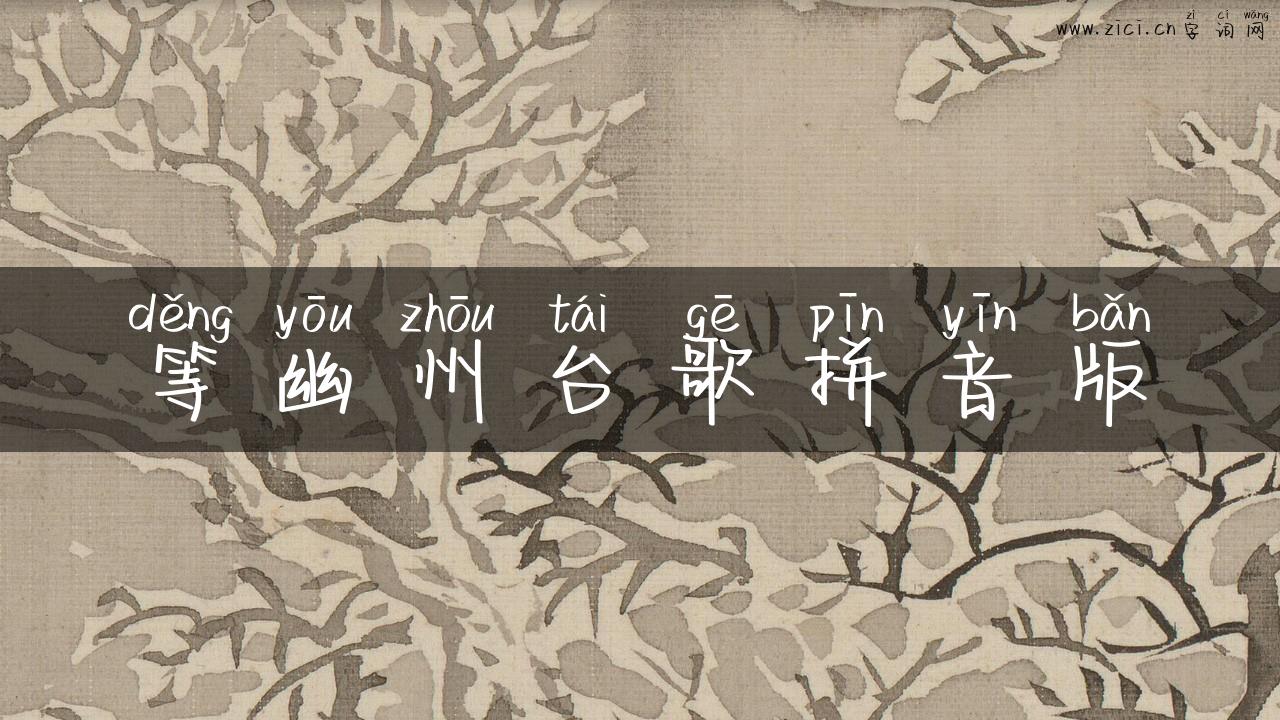 zì cí wǎng
www.zici.cn字词网
děng yōu zhōu tái gē pīn yīn bǎn
等幽州台歌拼音版